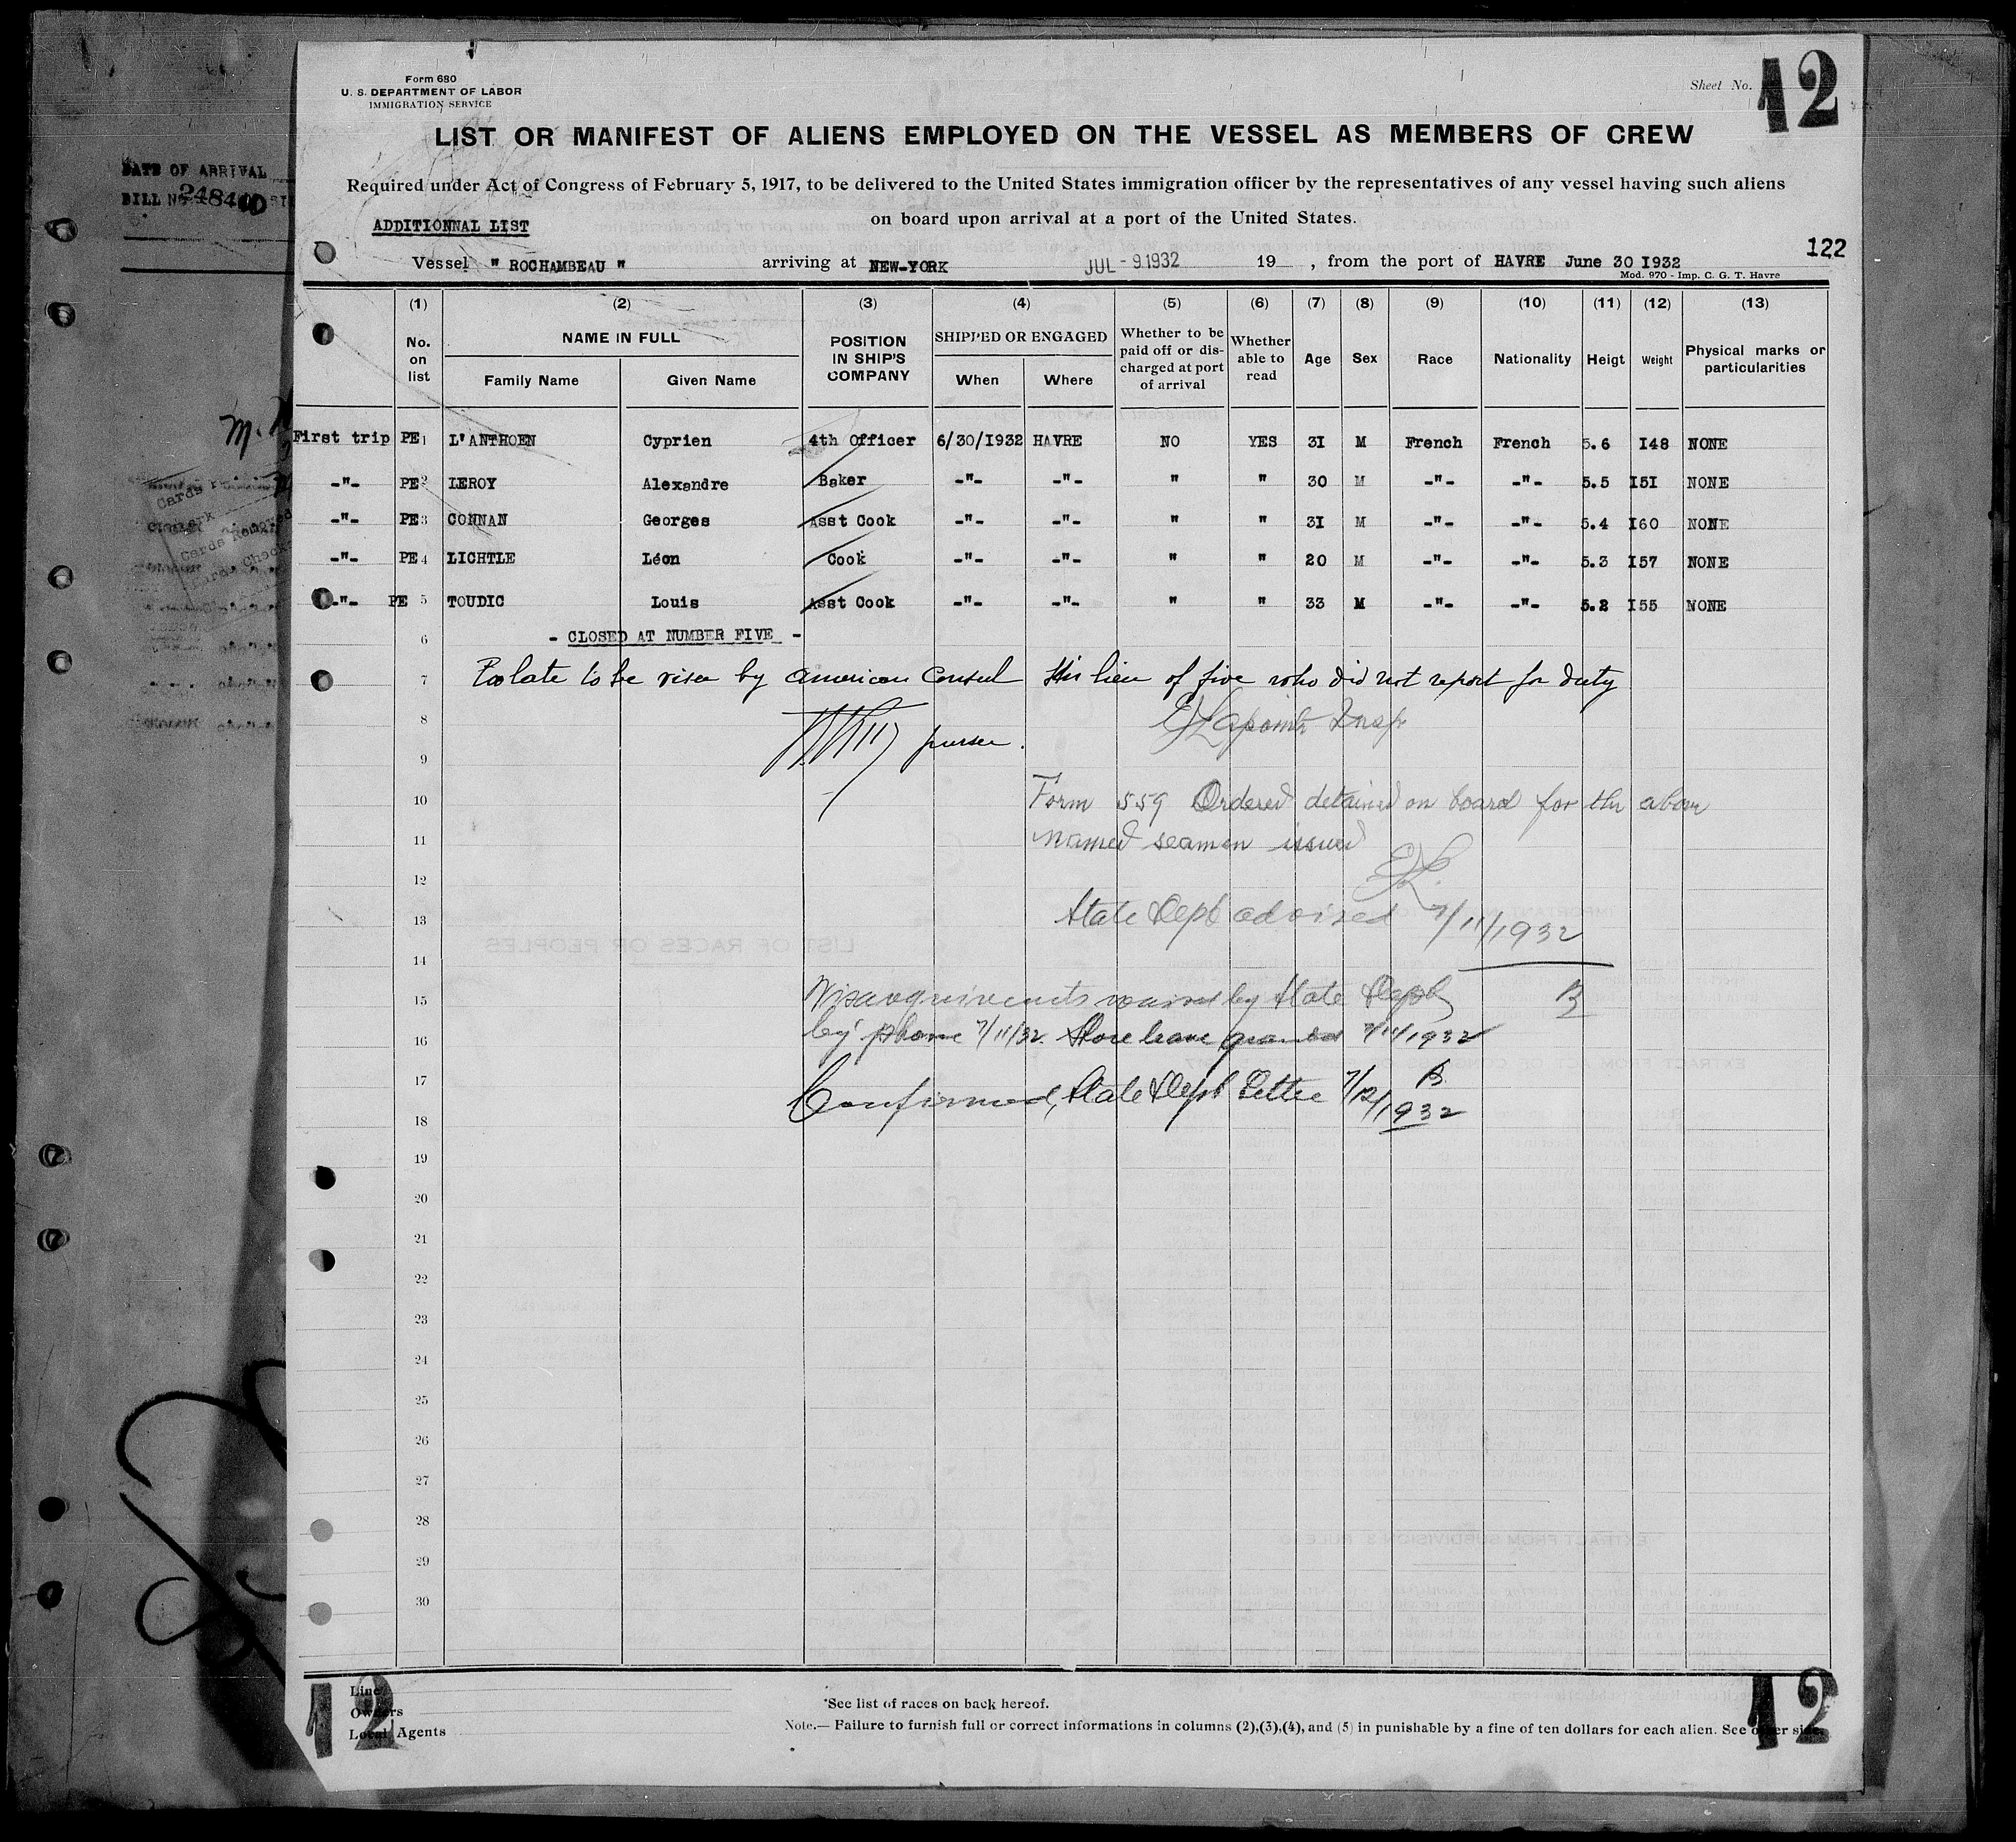 DATE OF ARRIVAL
BILL No 248400
Form 680
U. S. DEPARTMENT OF LABOR
IMMIGRATION SERVICE
Sheet No. 12
LIST OR MANIFEST OF ALIENS EMPLOYED ON THE VESSEL AS MEMBERS OF CREW
Required under Act of Congress of February 5, 1917, to be delivered to the United States immigration officer by the representatives of any vessel having such aliens
on board upon arrival at a port of the United States.
ADDITIONNAL LIST
122
Vessel " ROCHAMBEAU " arriving at NEW-YORK JUL - 9 1932 19 , from the port of HAVRE June 30 I932
Mod. 970 - Imp. C. G. T. Havre
(1) (2) (3) (4) (5) (6) (7) (8) (9) (10) (11) (12) (13)
No. on list NAME IN FULL Family Name Given Name POSITION IN SHIP'S COMPANY SHIPPED OR ENGAGED When Where Whether to be paid off or discharged at port of arrival Whether able to read Age Sex Race Nationality Heigt Weight Physical marks or particularities
First trip PE 1 L'ANTHOEN Cyprien 4th Officer 6/30/I932 HAVRE NO YES 3I M French French 5.6 I48 NONE
-"- PE 2 LEROY Alexandre Baker -"- -"- " " 30 M -"- -"- 5.5 I5I NONE
-"- PE 3 CONNAN Georges Asst Cook -"- -"- " " 3I M -"- -"- 5.4 I60 NONE
-"- PE 4 LICHTLE Léon Cook -"- -"- " " 20 M -"- -"- 5.3 I57 NONE
-"- PE 5 TOUDIC Louis Asst Cook -"- -"- " " 33 M -"- -"- 5.2 I55 NONE
6 - CLOSED AT NUMBER FIVE -
7 Too late to be visa by American Consul in lieu of five who did not report for duty
8 Insp
9 purser.
10 Form 559 Ordered detained on board for the above
11 named seamen issued
12
13 State Dept advised 7/11/1932
14
15 Visa requirements waived by State Dept B
16 by phone 7/11/32. Shore leave granted 7/11/1932
17 Confirmed, State Dept Letter 7/12/1932 B
18
19
20
21
22
23
24
25
26
27
28
29
30
Line
Owners
Local Agents
12
*See list of races on back hereof.
Note.— Failure to furnish full or correct informations in columns (2),(3),(4), and (5) in punishable by a fine of ten dollars for each alien. See other side.
12